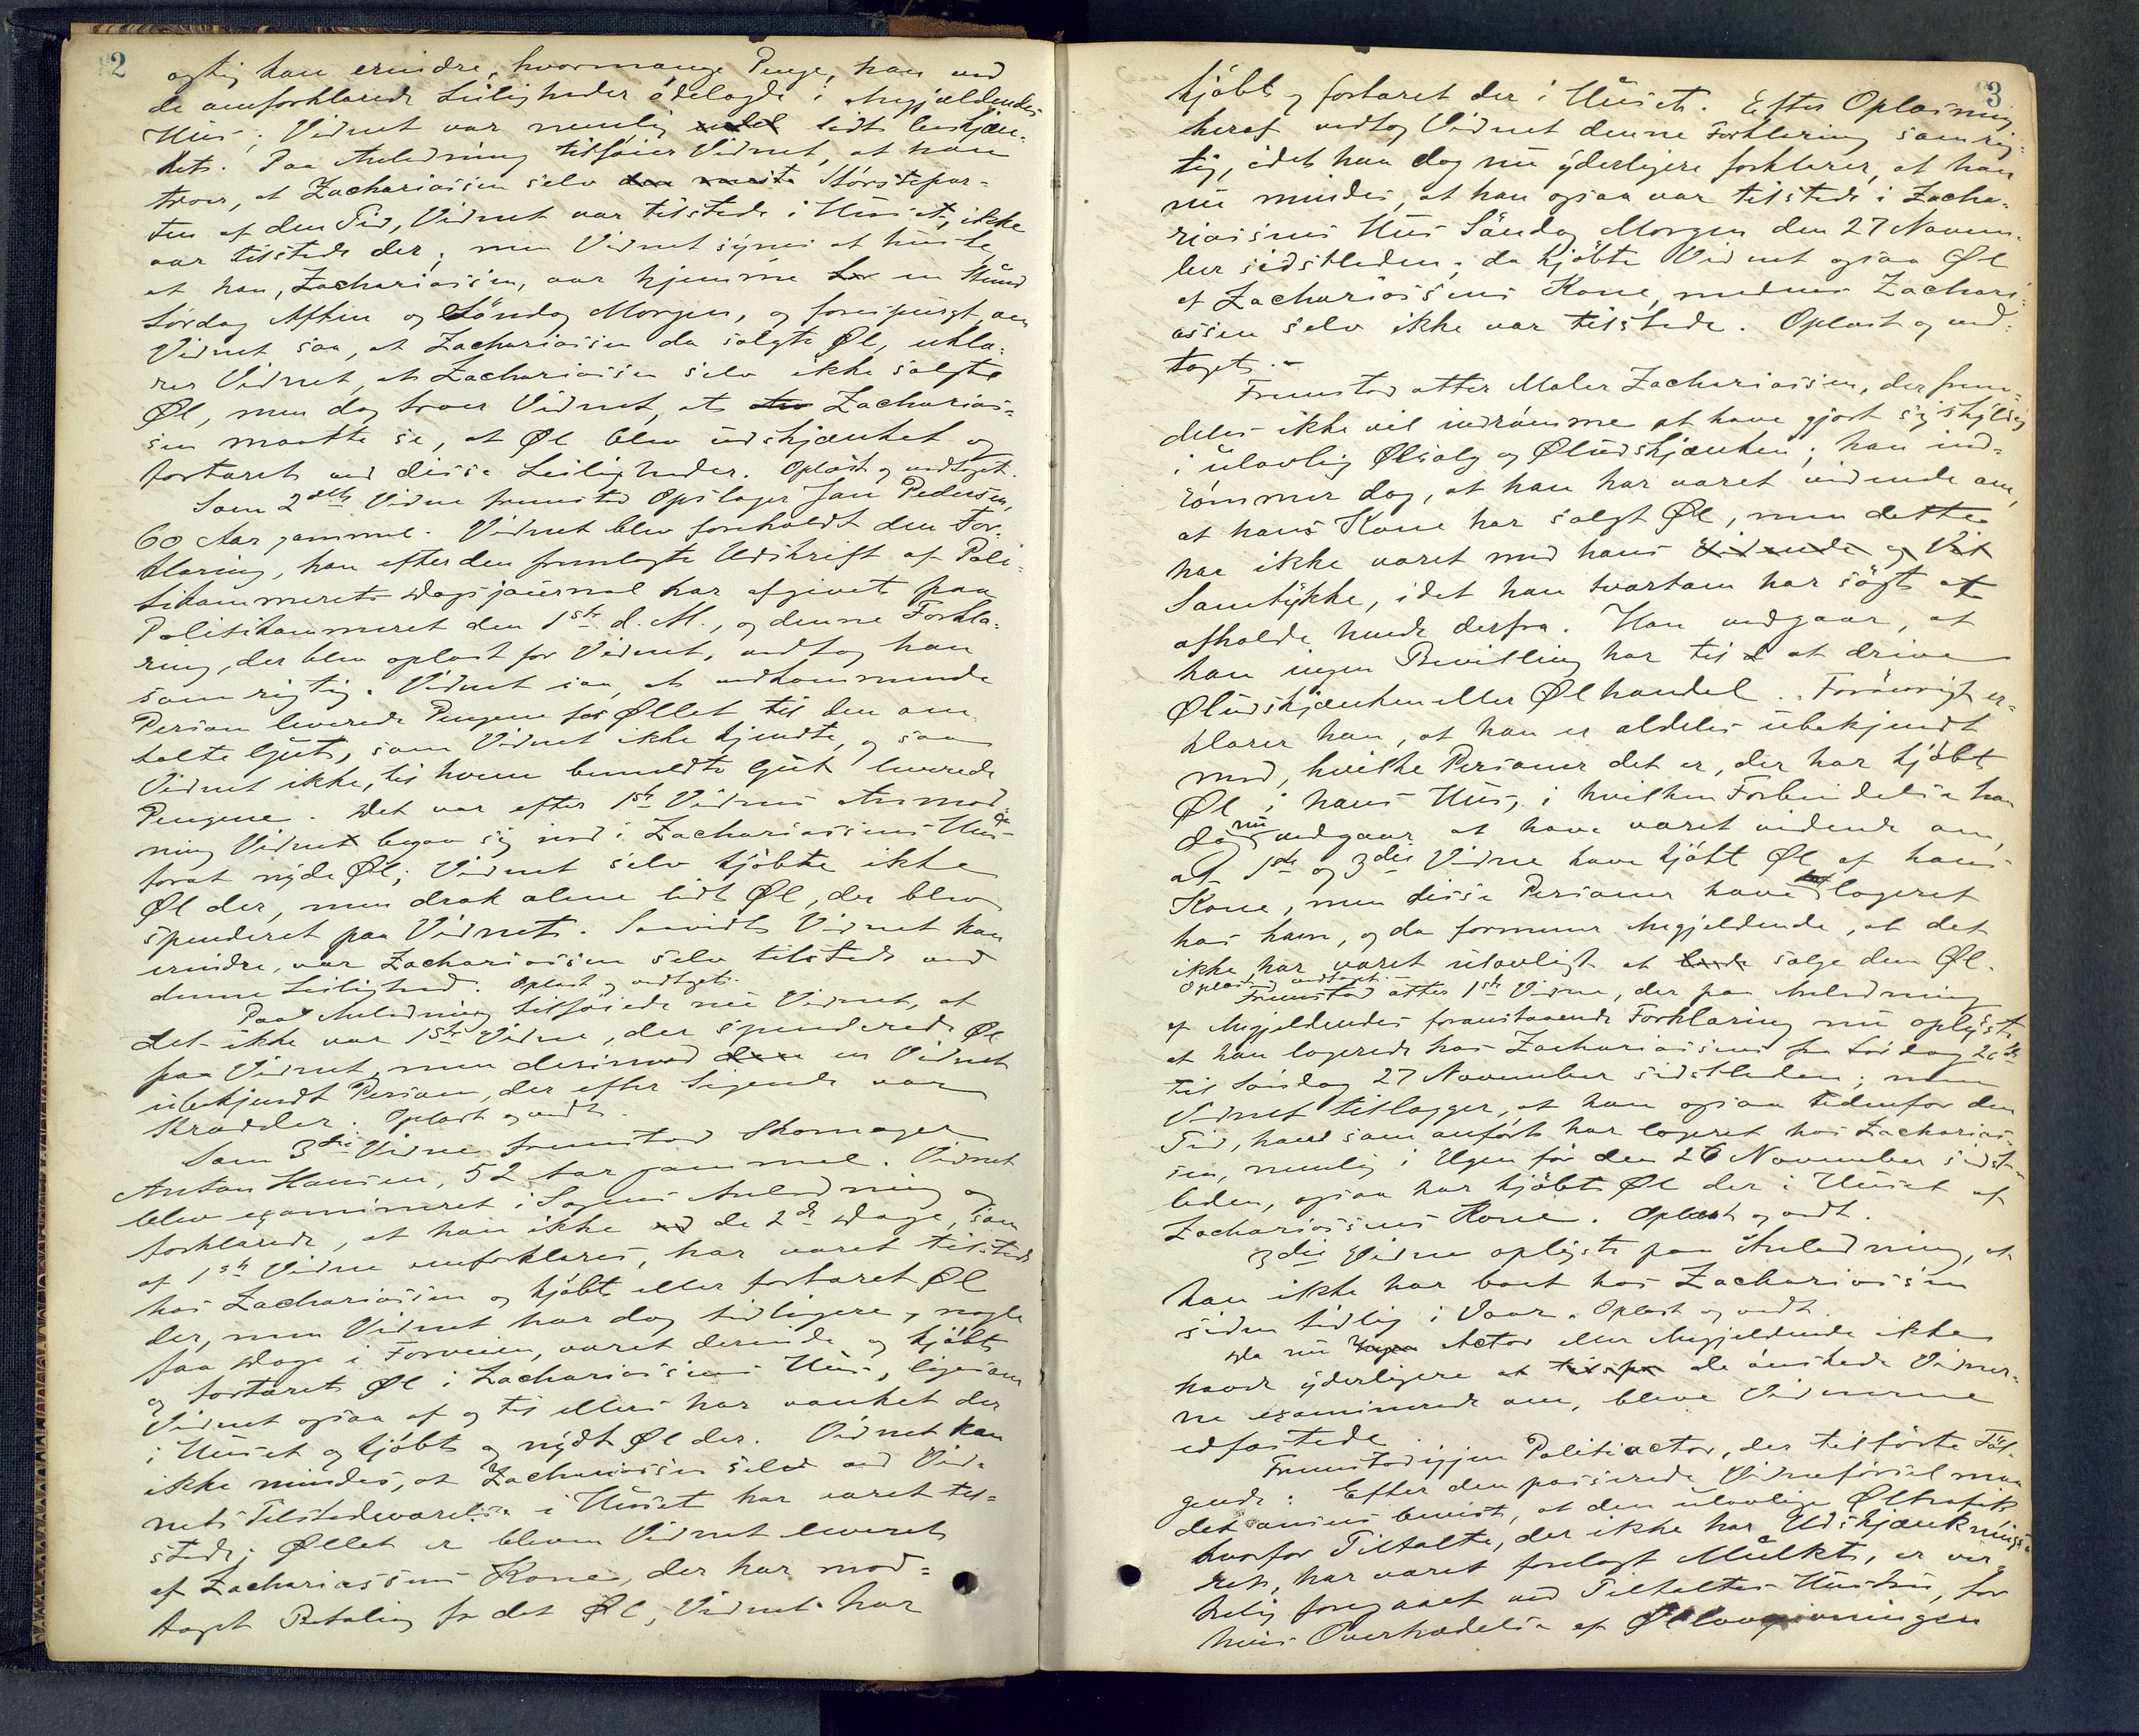 2
agtig kan erindre, hvormange Penge, han ved
de omforklarede Leiligheder ödelagde i Angjældendes
Huus; Vidnet var nemlig lidt beskjæn-
ket. Paa Anledning tilföier Vidnet, at han
troer, at Zachariassen selv den meste Störstepar-
ten af den Tid, Vidnet var tilstede i Huset, ikke
var tilstede der; men Vidnet synes at huske,
at han, Zachariassen, var hjemme en Stund
Lördag Aften og Söndag Morgen, og forespurgt om
Vidnet saa, at Zachariassen da solgte Øl, erklæ-
rer Vidnet, at Zachariassen selv ikke solgte
Øl, men dog troer Vidnet, at Zacharias-
sen maatte se, at Øl blev udskjænket og
fortæret ved disse Leiligheder. Oplæst og vedtaget.
Som 2det Vidne fremstod Opslager Jan Pedersen,
60 Aar gammel. Vidnet blev foreholdt den For-
klaring, han efter den fremlagte Udskrift af Poli-
tikammerets Dagsjournal har afgivet paa
Politikammeret den 1ste d. M., og denne Forkla-
ring, der blev oplæst for Vidnet, vedtog han
som rigtig. Vidnet saa, at vedkommende
Person leverede Pengene for Øllet til den om-
talte Gut, som Vidnet ikke kjendte, og saa
Vidnet ikke, til hvem bemeldte Gut leverede
Pengene. Det var efter 1ste Vidnes Anmod-
ning Vidnet begav sig ind i Zachariassens Huus
forat nyde Øl; Vidnet selv kjöbte ikke
Øl der, men drak alene lidt Øl, der blev
spenderet paa Vidnet. Saavidt Vidnet kan
erindre, var Zachariassen selv tilstede ved
denne Leilighed. Oplæst og vedtaget.
Paa Anledning tilföiede nu Vidnet, at
det ikke var 1ste Vidne, der spenderede Øl
paa Vidnet, men derimod en Vidnet
ubekjendt Person, der efter Sigende var
Skrædder. Oplæst og vedt.
Som 3die Vidne fremstod Skomager
Anton Hansen, 52 Aar gammel. Vidnet
blev examineret i Sagens Anledning og
forklarede, at han ikke de 2de Dage, som
af 1ste Vidne omforklares, har været tilstede
hos Zachariassen og kjöbt eller fortæret Øl
der, men Vidnet har dog tidligere, nogle
faa Dage i Forveien, været derinde og kjöbt
og fortæret Øl i Zachariassens Huus, ligesom
Vidnet ogsaa af og til ellers har vanket der
i Huset og kjöbt og nydt Øl der. Vidnet kan
ikke mindes, at Zachariassen selv ved Vid-
nets Tilstedeværelse i Huset har været til-
stede; Øllet er bleven Vidnet leveret
af Zachariassens Kone, der har mod-
taget Betaling for det Øl, Vidnet har
3
kjöbt og fortæret der i Huset. Efter Oplæsning
heraf vedtog Vidnet denne Forklaring som rig-
tig, idet han dog nu yderligere forklarer, at han
nu mindes, at han ogsaa var tilstede i Zacha-
riassens Huus Söndag Morgen den 27 Novem-
ber sidstleden; da kjöbte Vidnet ogsaa Øl
af Zachariassens Kone, medens Zachari-
assen selv ikke var tilstede. Oplæst og ved-
taget.-
Fremstod atter Maler Zachariassen, der frem-
deles ikke vil indrömme at have gjort sig skyldig
i ulovlig Ølsalg og Øludskjænken; han ind-
römmer dog, at han har været vidende om,
at hans Kone har solgt Øl, men dette
har ikke været med hans Vidende og Vil
Samtykke, idet han tvertom har sögt at
afholde hende derfra. Han vedgaar, at
han ingen Bevilling har til at drive
Øludskjænken eller Ølhandel. Forövrigt er-
klærer han, at han er aldeles ubekjendt
med, hvilke Personer det er, der har kjöbt
Øl i hans Huus, i hvilken Forbindelse han
dog nu vedgaar at have været vidende om,
at 1ste og 3die Vidne have kjöbt Øl af hans
Kone, men disse Personer have logeret
hos ham, og da formener Angjældende, at det
ikke har været ulovligt at sælge dem Øl.
Oplæst og vedtaget.-
Fremstod atter 1ste Vidne, der paa Anledning
af Angjældendes foranstaaende Forklaring nu oplyste,
at han logerede hos Zachariassens fra Lördag 26de
til Söndag 27 November sidstleden; men
Vidnet tillægger, at han ogsaa udenfor den
Tid, han som anfört har logeret hos Zacharias-
sen, nemlig i Ugen för den 26 November sidst-
leden, ogsaa har kjöbt Øl der i Huset af
Zachariassens Kone. Oplæst og vedt.
3die Vidne oplyste paa Anledning, at
han ikke har boet hos Zachariassen
siden tidlig i Vaar. Oplæst og vedt.
Da nu Actor eller Angjældende ikke
havde yderligere at de önskede Vidner-
ne examinerede om, bleve Vidnerne
edfæstede.
Fremstod igjen Politiactor, der tilförte Föl-
gende: Efter den passerede Vidneförsel maa
det ansees bevist, at den ulovlige Øltrafik
hvorfor Tiltalte, der ikke har Udskjænknings-
ret, har været forelagt Mulkt, er vir-
kelig foregaaet ved Tiltaltes Hustru, for
hvis Overtrædelse af Øllovgivningen